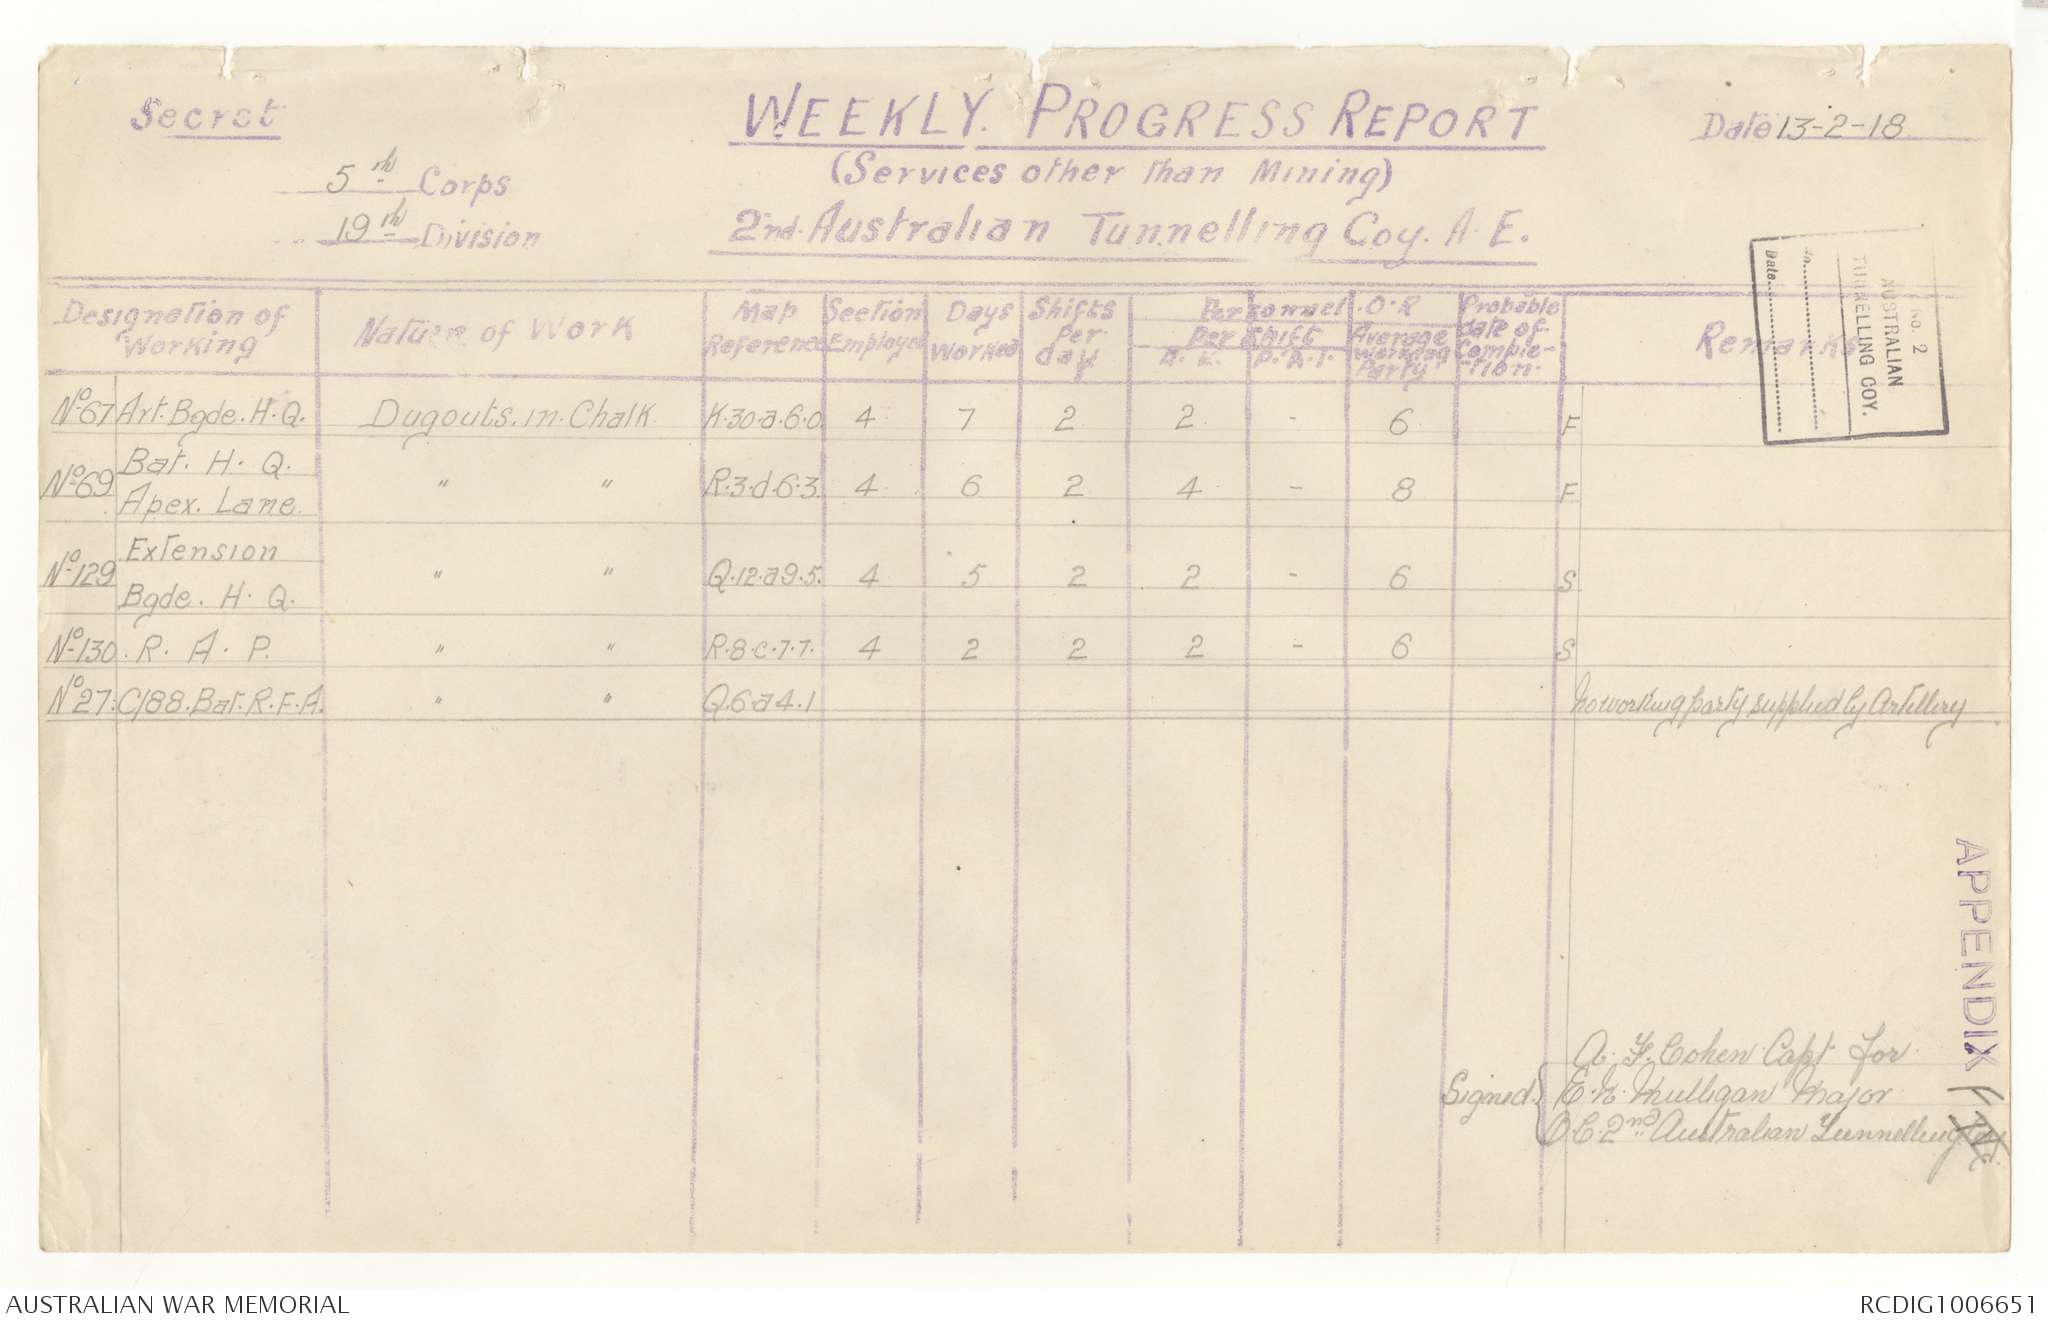 Secret
WEEKLY. PROGRESS REPORT
Date 13-2-18
(Services other than Mining)
5th Corps
19th Division
2nd. Australian Tunnelling Coy. A. E.
No. 2
AUSTRALIAN
TUNNELLING COY.
No.
Date
Designation of Working Nature of Work Map Reference Section Employed Days Worked Shifts Per day. Personnel O.R Per Shift P.A.T. Average Working Party Probable date of Completion. Remarks
No 67 Art. Bgde. H. Q. Dugouts. in. Chalk K.30.a.6.0. 4 7 2 2 - 6 F
No 69 Bat. H. Q. Apex. Lane. " " R.3.d.6.3. 4 6 2 4 - 8 F
No 129 Extension Bgde. H. Q. " " Q.12.a9.5. 4 5 2 2 - 6 S
No 130. R. A. P. " " R.8.c.7.7. 4 2 2 2 - 6 S
No 27: C/88. Bat. R. F. A. " " Q.6.a4.1 No working party supplied by Artillery
APPENDIX
A. F. Cohen Capt for
Signed. E. N. Mulligan Major
O.C. 2nd Australian Tunnelling Coy
AUSTRALIAN WAR MEMORIAL
RCDIG1006651